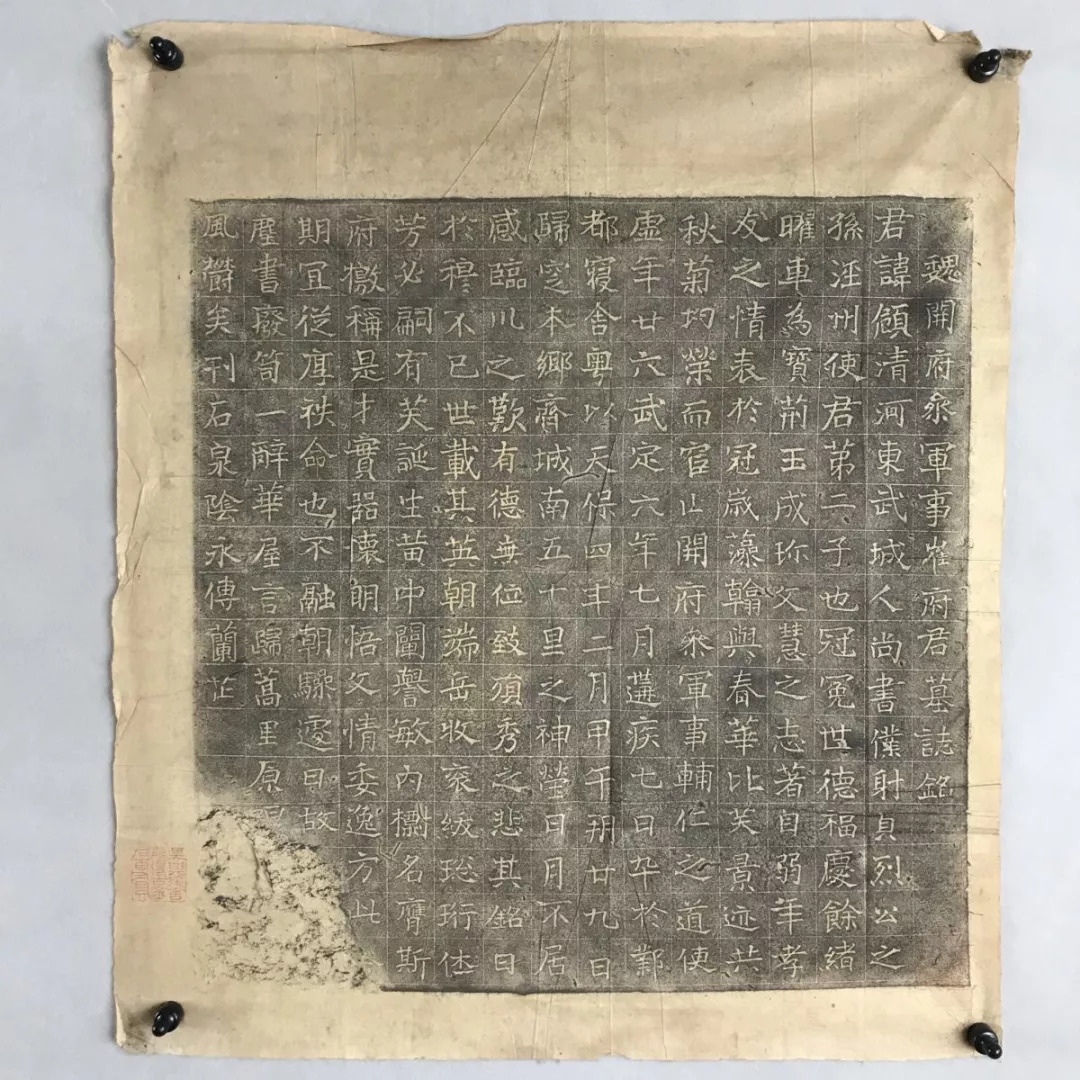 魏開府叅軍事崔府君墓誌銘
君諱頠清河東武城人尚書僕射貞烈公之
孫涇州使君第二子也冠冕世德福慶餘緒
曜車為寶荊玉成珎文慧之志著自弱年孝
友之情表於冠歲藻翰與春華比芙景迹共
秋菊均榮而官止開府叅軍事輔仁之道便
虛年廿六武定六年七月遘疾七日卒於鄴
都寢舍粵以天保四年二月甲午朔廿九日
歸窆本鄉齊城南五十里之神塋日月不居
感臨川之歎有德無位致殞秀之悲其銘曰
於穆不已世載其英朝端岳收袞紱珩
芳必嗣有芙誕生黃中闡譽敏內名膺斯
府檄稱是才實器懷明悟文情委逸方此
期宜從厚袟命也不融朝驟遽日故
塵書廢笥一辭華屋言歸蒿里原
風欝矣刊石泉陰永傳蘭芷